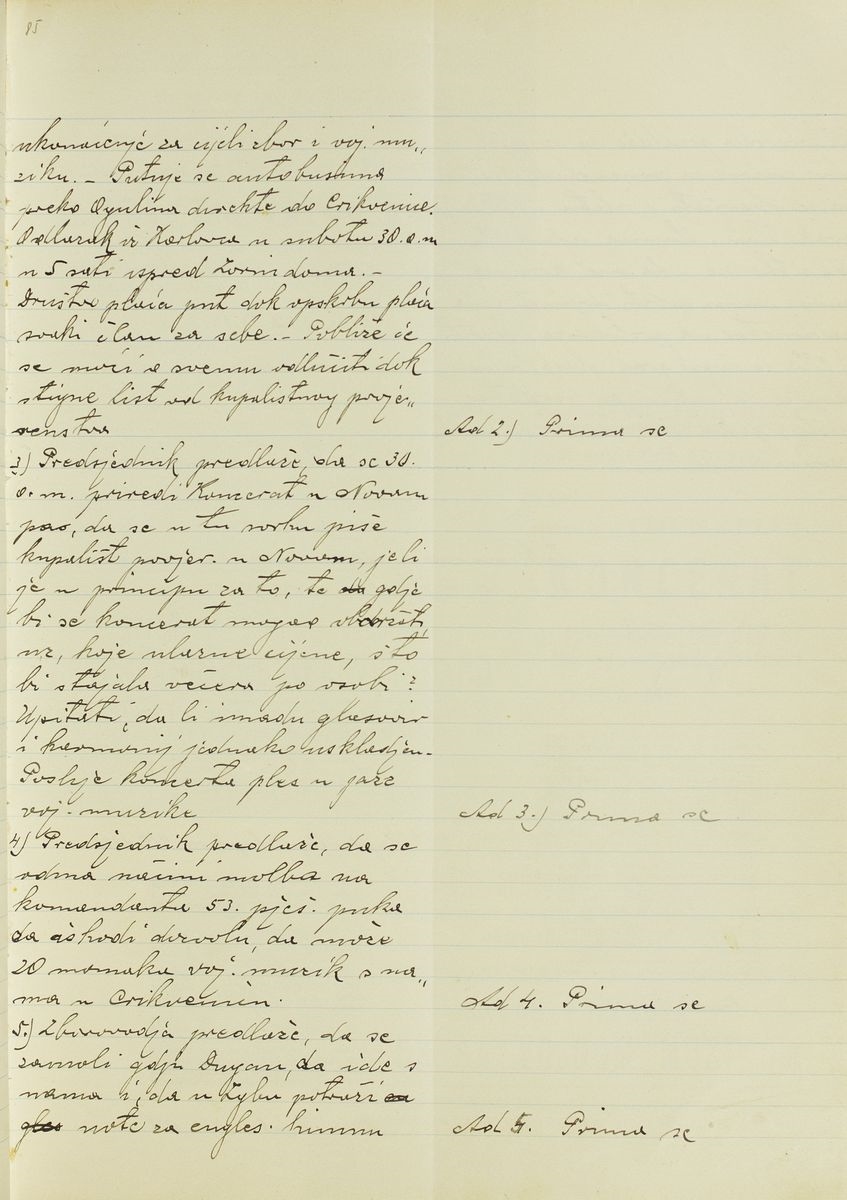 85
ukonačenje za cijeli zbor i voj. mu„
ziku. – Putuje se autobusima
preko Ogulina direkte do Crikvenice.
Odlazak iz Karlovca u subotu 30. o. m
u 5 sati ispred Zorin doma. –
Društvo plaća put dok opskrbu plaća
svaki član za sebe. – Pobliže će
se moći o svemu odlučiti dok
stigne list od kupalištnog povje„
renstva
Ad 2.) Prima se
3) Predsjednik predlaže, da se 30.
o. m. priredi Koncerat u Novom
pao, da se u tu svrhu piše
kupališt povjer. u Novom, jeli
je u principu za to, te da gdje
bi se koncerat mogao obdržati,
uz, koje ulazne cijene, što
bi stajala večera po osobi?
Upitati, da li imadu glasovir
i harmonij jednako uskladjen.
Poslije koncerta ples uz jazz
voj. muzike
Ad 3.) Prima se
4) Predsjednik predlaže, da se
odma načini molba na
komandanta 53. pješ. puka
da ishodi dozvolu, da može
20 momaka voj. muzik s na„
ma u Crikvenicu.
Ad 4. Prima se
5.) Zborovodja predlaže, da se
zamoli gdju Dugan, da ide s
nama i, da u Zgbu potraži za
glas note za engles. himnu
Ad 5. Prima se